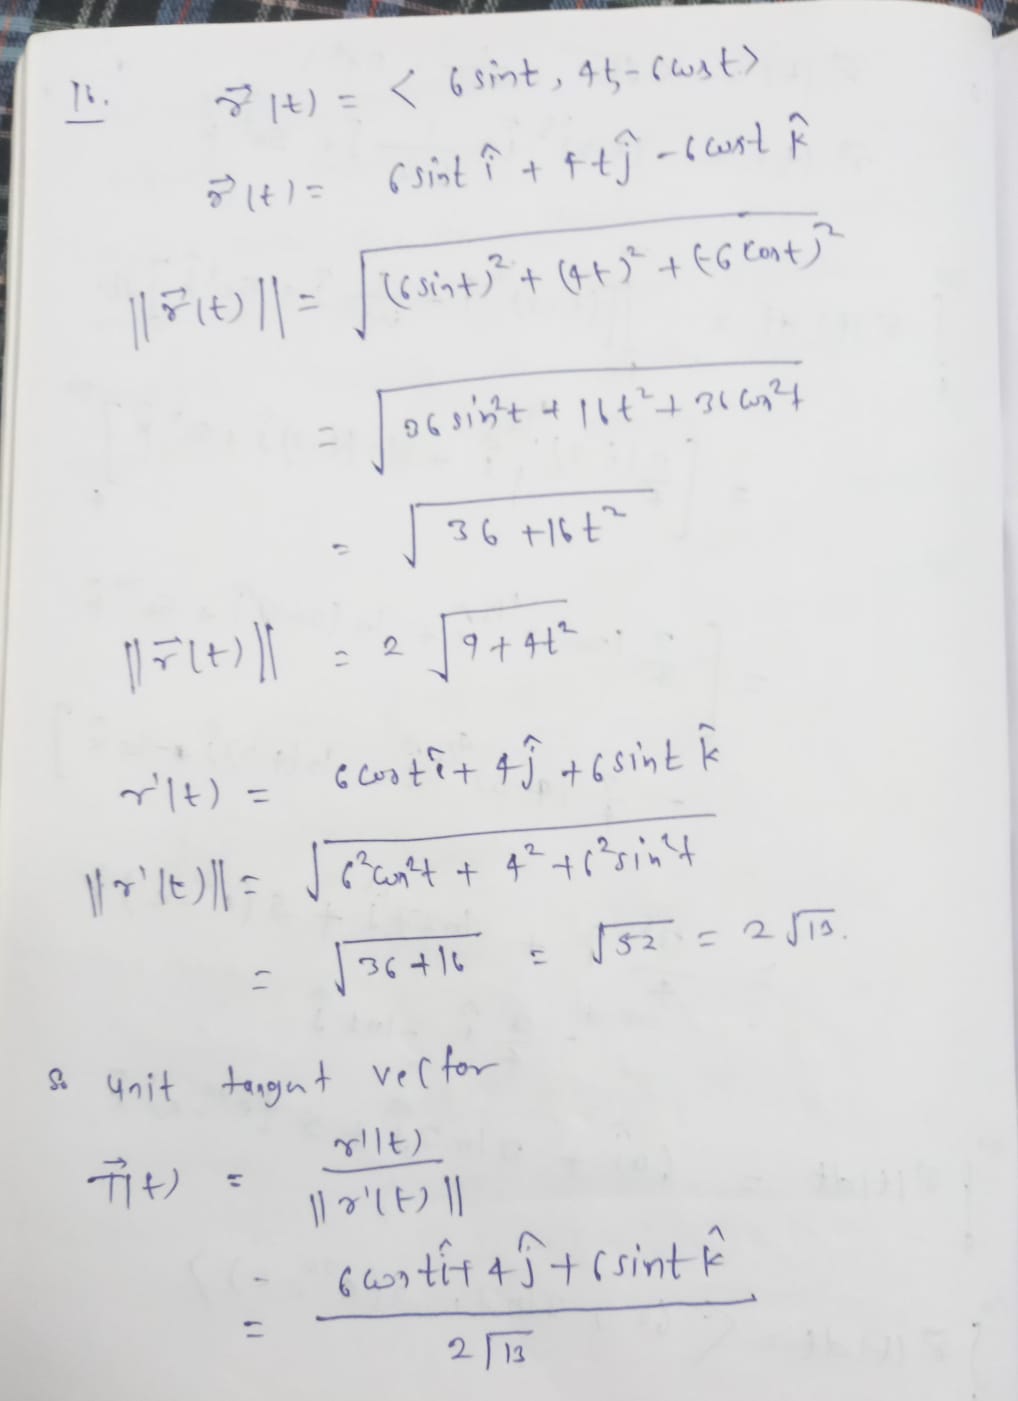 16. r⃗(t) = < 6 sint, 4t, -6cost>
r⃗(t) = 6 sint î + 4tĵ - 6 cost k̂
||r⃗(t)|| = √((6sint)² + (4t)² + (-6 cost)²)
= √(36 sin²t + 16t² + 36 cos²t)
= √(36 + 16t²)
||r⃗(t)|| = 2 √(9 + 4t²)
r'(t) = 6 cost î + 4ĵ + 6 sint k̂
||r'(t)|| = √(6² cos²t + 4² + 6² sin²t)
= √(36 + 16) = √52 = 2 √13.
So unit tangent vector
T⃗(t) = r'(t) / ||r'(t)||
= (6 cost î + 4ĵ + 6 sint k̂) / 2√13